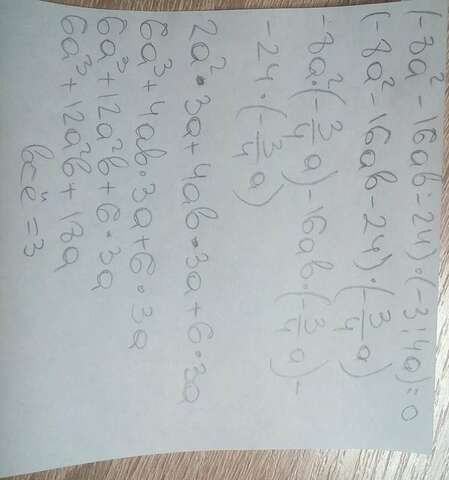 (-8a² - 16ab - 24) · (-3|4a) = 0
(-8a² - 16ab - 24) · (-3/4 a)
-8a² · (-3/4 a) - 16ab · (-3/4 a) -
-24 · (-3/4 a)
2a² · 3a + 4ab · 3a + 6 · 3a
6a³ + 4ab · 3a + 6 · 3a
6a³ + 12a²b + 6 · 3a
6a³ + 12a²b + 18a
всё = 3